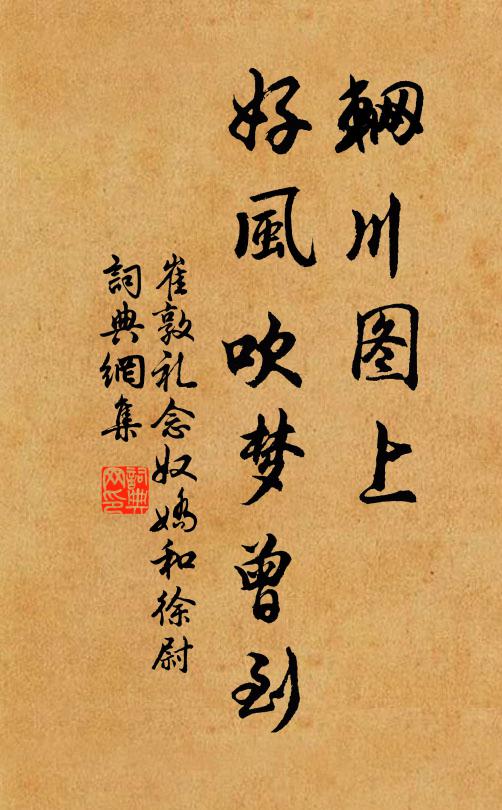 輞川图上
好風吹梦曾到
崔敦礼念奴嬌和徐尉
詞典網集
詞典网印